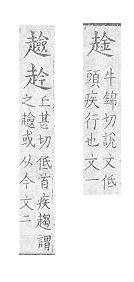 趛
牛錦切說文低
頭疾行也文一
趛赺
丘甚切低首疾趨謂
之趛或从今文二